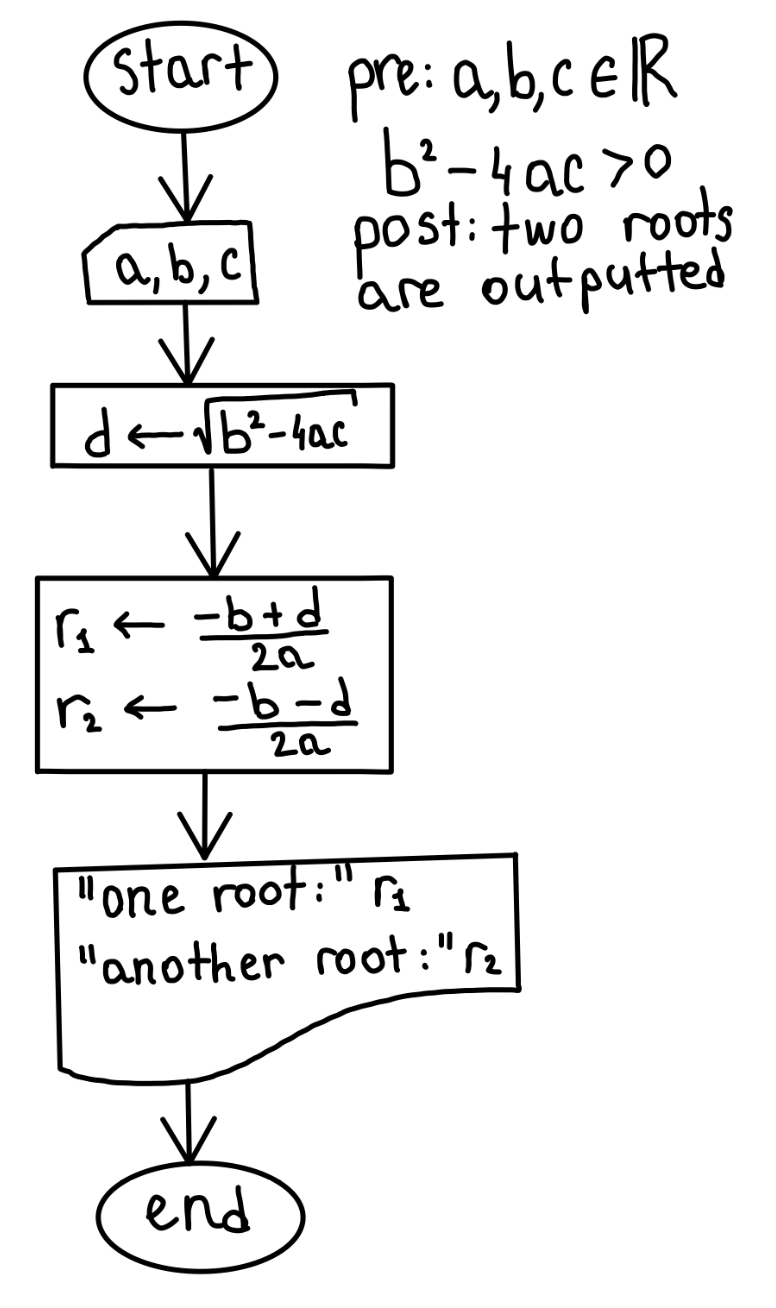 start
pre: a,b,c ∈ ℝ
b² - 4ac > 0
post: two roots
are outputted
a, b, c
d ← √(b²-4ac)
r₁ ← (-b+d)/(2a)
r₂ ← (-b-d)/(2a)
"one root:" r₁
"another root:" r₂
end